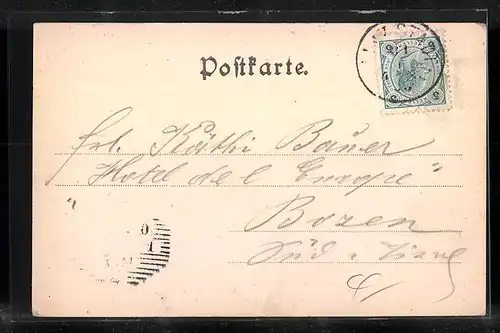 Postkarte.
Frl. Käthi Bauer
"Hotel de l Europe"
Bozen
Süd-Tirol